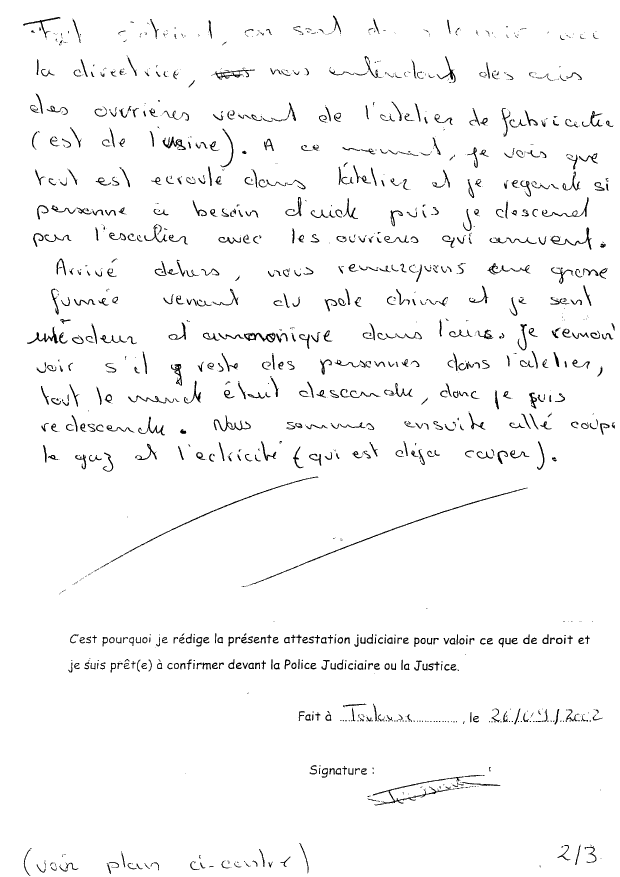 la directrice, nous entendont des cris
des ouvrières venant de l'atelier de fabricatio
(est de l'usine). A ce moment, je vois que
tout est ecroulé dans l'atelier et je regarde si
personne à besoin d'aide puis je descend
par l'escalier avec les ouvrières qui arrivent.
Arrivé dehors, nous remarquons une grosse
fumée venant du pole chimie et je sent
une odeur d'ammoniaque dans l'air. Je remon
voir s'il y reste des personnes dans l'atelier,
tout le monde était descendu, donc je suis
redescendu. Nous sommes ensuite allé coupe
le gaz et l'ectricité (qui est déja couper).
C'est pourquoi je rédige la présente attestation judiciaire pour valoir ce que de droit et
je suis prêt(e) à confirmer devant la Police Judiciaire ou la Justice.
Fait à Toulouse, le 26/09/2002
Signature :
(voir plan ci-contre)
2/3